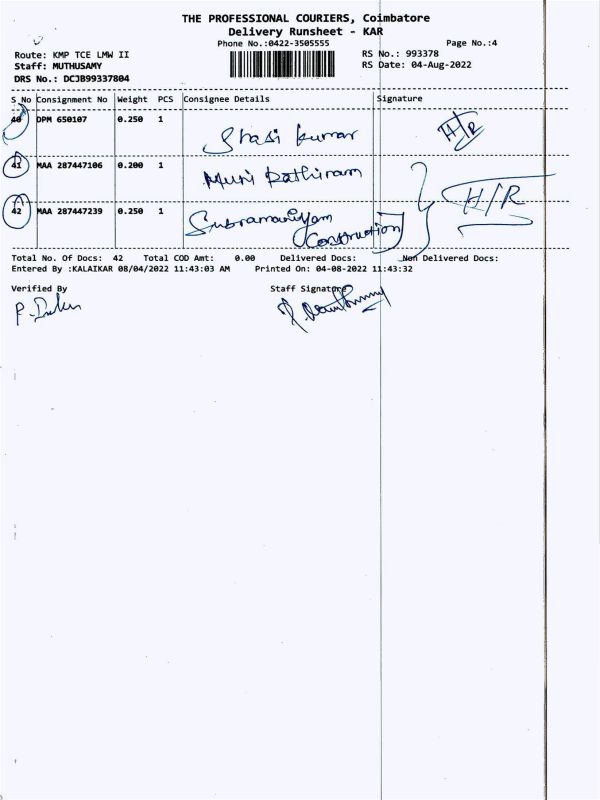 THE PROFESSIONAL COURIERS, Coimbatore
Delivery Runsheet - KAR
Phone No.:0422-3505555 Page No.:4
Route: KMP TCE LMW II RS No.: 993378
Staff: MUTHUSAMY RS Date: 04-Aug-2022
DRS No.: DCJB99337804
S_No Consignment No Weight PCS Consignee Details Signature
40 DPM 650107 0.250 1 Shasi kumar H/R
41 MAA 287447106 0.200 1 Muni Rathinam
42 MAA 287447239 0.250 1 Subramaniyam H/R
Construction
Total No. Of Docs: 42 Total COD Amt: 0.00 Delivered Docs: Non Delivered Docs:
Entered By :KALAIKAR 08/04/2022 11:43:03 AM Printed On: 04-08-2022 11:43:32
Verified By Staff Signature